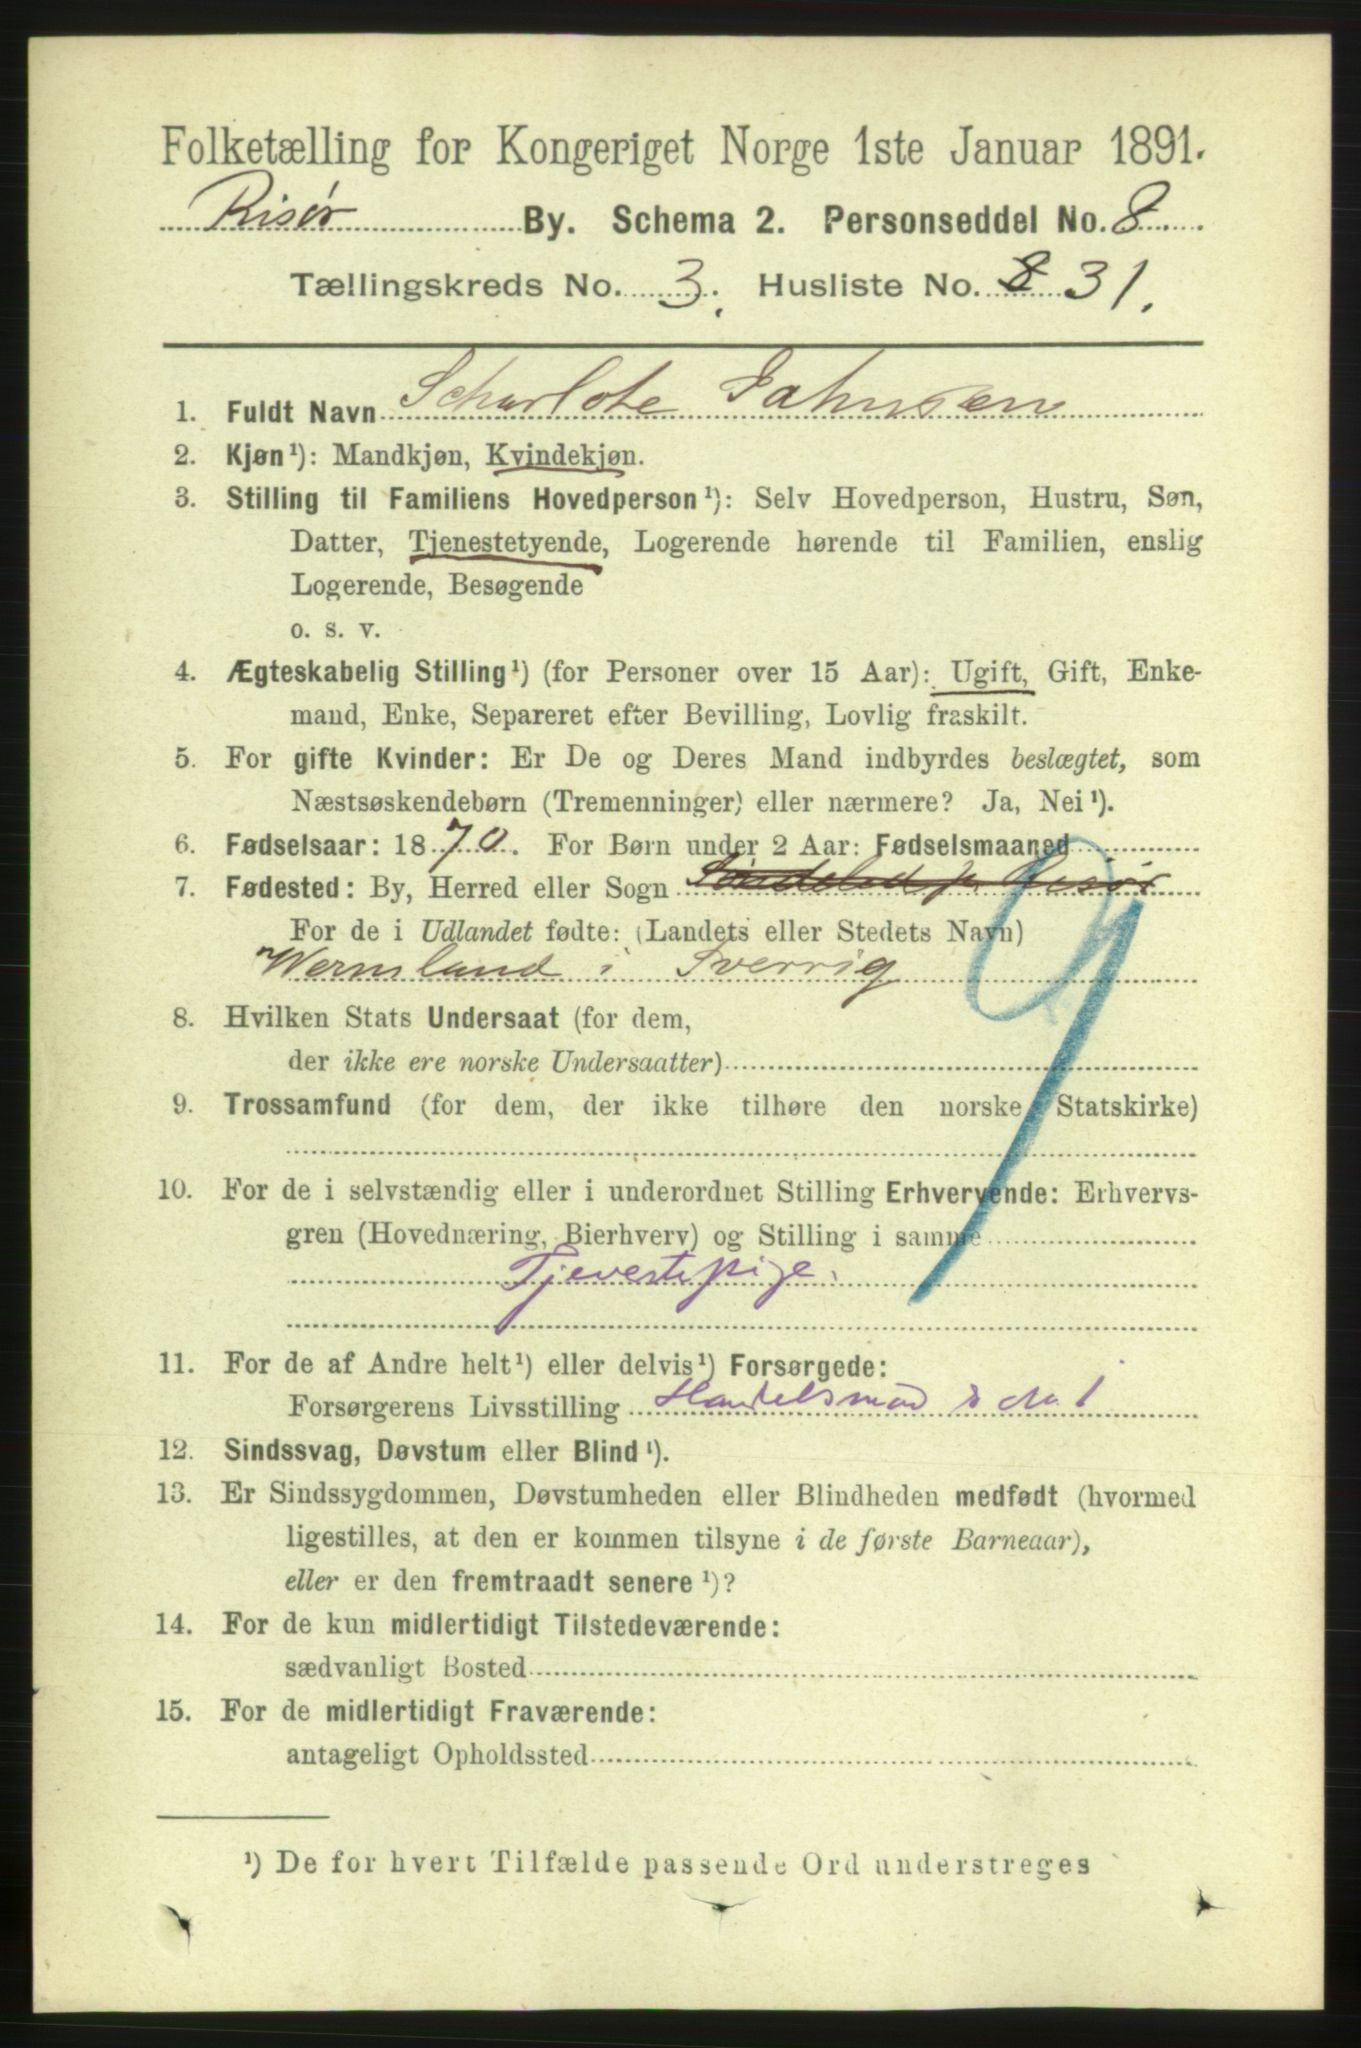 Folketælling for Kongeriget Norge 1ste Januar 1891.
Risør By. Schema 2. Personseddel No. 8.
Tællingskreds No. 3. Husliste No. 8 31.
1. Fuldt Navn Scharlote Jahnsen
2. Kjøn¹): Mandkjøn, Kvindekjøn.
3. Stilling til Familiens Hovedperson¹): Selv Hovedperson, Hustru, Søn,
Datter, Tjenestetyende, Logerende hørende til Familien, enslig
Logerende, Besøgende
o. s. v.
4. Ægteskabelig Stilling¹) (for Personer over 15 Aar): Ugift, Gift, Enke-
mand, Enke, Separeret efter Bevilling, Lovlig fraskilt.
5. For gifte Kvinder: Er De og Deres Mand indbyrdes beslægtet, som
Næstsøskendebørn (Tremenninger) eller nærmere? Ja, Nei¹).
6. Fødselsaar: 1870. For Børn under 2 Aar: Fødselsmaaned
7. Fødested: By, Herred eller Sogn Søndeled pr Risør
For de i Udlandet fødte: (Landets eller Stedets Navn)
Wermland i Sverrig
8. Hvilken Stats Undersaat (for dem,
der ikke ere norske Undersaatter)
9. Trossamfund (for dem, der ikke tilhøre den norske Statskirke)
10. For de i selvstændig eller i underordnet Stilling Erhvervende: Erhvervs-
gren (Hovednæring, Bierhverv) og Stilling i samme
Tjenestepige.
11. For de af Andre helt¹) eller delvis¹) Forsørgede:
Forsørgerens Livsstilling Handelsmand
12. Sindssvag, Døvstum eller Blind¹).
13. Er Sindssygdommen, Døvstumheden eller Blindheden medfødt (hvormed
ligestilles, at den er kommen tilsyne i de første Barneaar),
eller er den fremtraadt senere¹)?
14. For de kun midlertidigt Tilstedeværende:
sædvanligt Bosted
15. For de midlertidigt Fraværende:
antageligt Opholdssted
¹) De for hvert Tilfælde passende Ord understreges